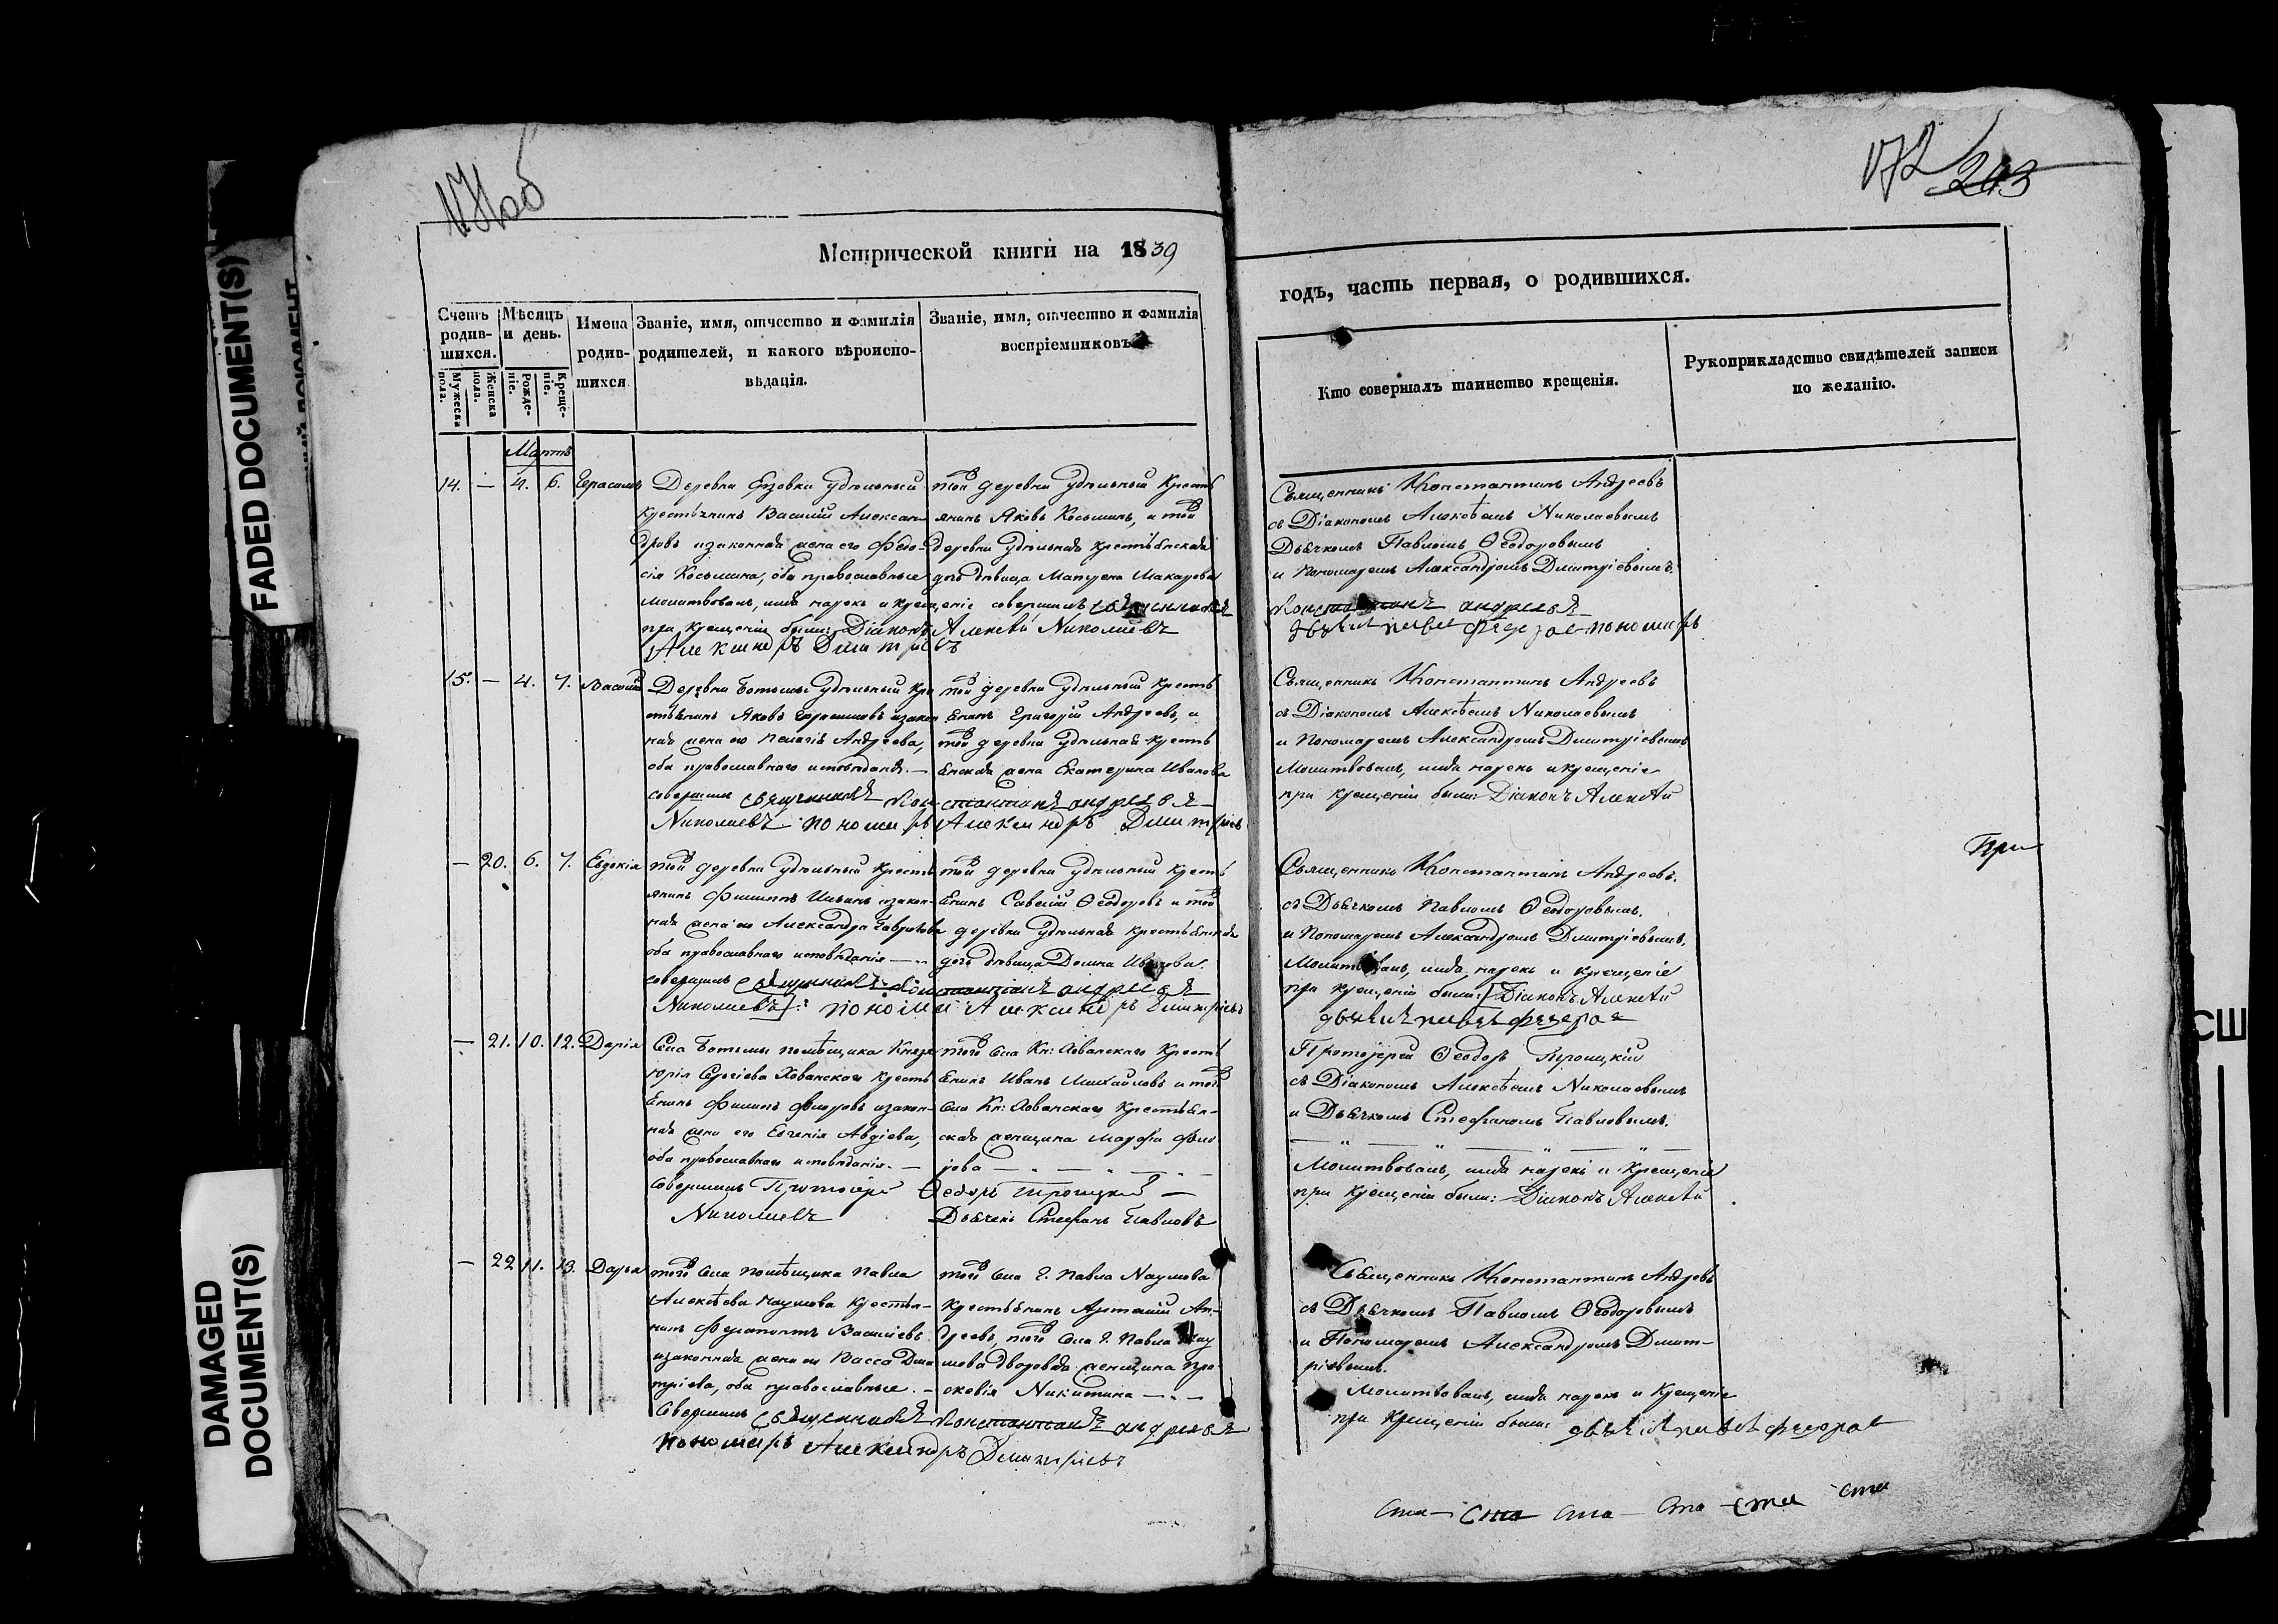 171 об
172 243
Метрической книги на 1839
годъ, часть первая, о родившихся.
Счетъ родив-шихся.
Мужеска пола.
Женска пола.
Мѣсяцъ и день.
Рожде-ніе.
Креще-ніе.
Имена родив-шихся.
Званіе, имя, отчество и фамилія
родителей, и какого вѣроиспо-
вѣдація.
Званіе, имя, отчество и фамилія
воспріемниковъ
Кто совершалъ таинство крещенія.
Рукоприкладство свидѣтелей записи
по желанію.
Мартъ
14. — 4. 6. Герасимъ
Деревни удѣльный
крестьянинъ Василій Алексан
дровъ и законная жена его Федо-
сія Косьмина, оба православные
той деревни удѣльный кресть
янинъ Яковъ Косьминъ, и той
деревни удѣльная крестьянская
дочь дѣвица Матрена Макарова
молитвовалъ, имя нарекъ и крещеніе совершилъ священникъ
при крещеніи были: Діаконъ Алексѣй Николаевъ
Александръ Дмитріевъ
Священникъ Константинъ Андреевъ
съ Діакономъ Алексѣемъ Николаевымъ
Дьячкомъ Павломъ Ѳеодоровымъ
и Пономаремъ Александромъ Дмитріевымъ.
Константинъ андреевъ
пономарь
15. — 4. 7. Василій
Деревни Ботьмы удѣльный кре
стьянинъ Яковъ Герасимовъ и закон
ная жена его Пелагія Андреева,
оба православнаго исповѣданія. —
совершилъ священникъ Константинъ андреевъ
Николаевъ пономарь Александръ Дмитріевъ
той деревни удѣльный кресть
янинъ Григорій Андреевъ, и
той деревни удѣльная кресть
янская жена Екатерина Иванова
Священникъ Константинъ Андреевъ
съ Діакономъ Алексѣемъ Николаевымъ
и Пономаремъ Александромъ Дмитріевымъ
Молитвовалъ, имя нарекъ и крещеніе
при крещеніи были: Діаконъ Алексѣй
При
— 20. 6. 7. Евдокія
той деревни удѣльный кресть
янинъ Филиппъ Ильинъ и закон-
ная жена его Александра Гаврилова
оба православнаго исповѣданія —
совершилъ священникъ Константинъ андреевъ
Николаевъ: пономарь Александръ Дмитріевъ
той деревни удѣльный кресть
янинъ Савелій Ѳеодоровъ и той
деревни удѣльная крестьянская
дочь дѣвица Домна
Священникъ Константинъ Андреевъ.
съ Дьячкомъ Павломъ Ѳеодоровымъ.
и Пономаремъ Александромъ Дмитріевымъ.
Молитвовалъ, имя нарекъ и крещеніе
при крещеніи были: Діаконъ Алексѣй
— 21. 10. 12. Дарія
Села Ботьмы помѣщика Князя
Юрія Сергіева Хованскаго кресть
янинъ Филипъ Фроловъ и закон-
ная жена его Евгенія Авдіева,
оба православнаго исповѣданія. —
совершилъ Протоіерей Ѳедоръ Троицкій —
Николаевъ Дьячекъ Стефанъ Павловъ
того села Кн: Хованскаго кресть
янинъ Иванъ Михайловъ и того
села Кн: Хованскаго крестьян-
ская женщина Марфа
Протоіерей Ѳеодоръ Троицкій
съ Діакономъ Алексѣемъ Николаевымъ
и Дьячкомъ Стефаномъ Павловымъ.
Молитвовалъ, имя нарекъ и крещеніе
при крещеніи были: Діаконъ Алексѣй
— 22 11. 13. Дарья
того села помѣщика Павла
Алексѣева Наумова крестья-
нинъ Ферапонтъ Васильевъ
и законная жена его Васса Дми
тріева, оба православные. —
Совершилъ священникъ Константинъ андреевъ
пономарь Александръ Дмитріевъ
того села Г. Павла Наумова
крестьянинъ Артемій Ан-
дреевъ, того села Г. Павла Нау
мова дворовая женщина Про-
сковія Никитина — " —
Священникъ Константинъ Андреевъ
съ Дьячкомъ Павломъ Ѳеодоровымъ
и Пономаремъ Александромъ Дмит-
ріевымъ.
Молитвовалъ, имя нарекъ и крещеніе
при крещеніи были:
FADED DOCUMENT(S)
DAMAGED
DOCUMENT(S)
СШ